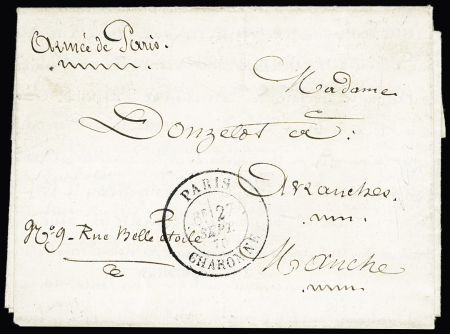 Armée de Paris.
Madame
Donzelot à:
Avranches.
N.º 9 - Rue Belle étoile
Manche
PARIS
27
SEPT.
CHARONNE